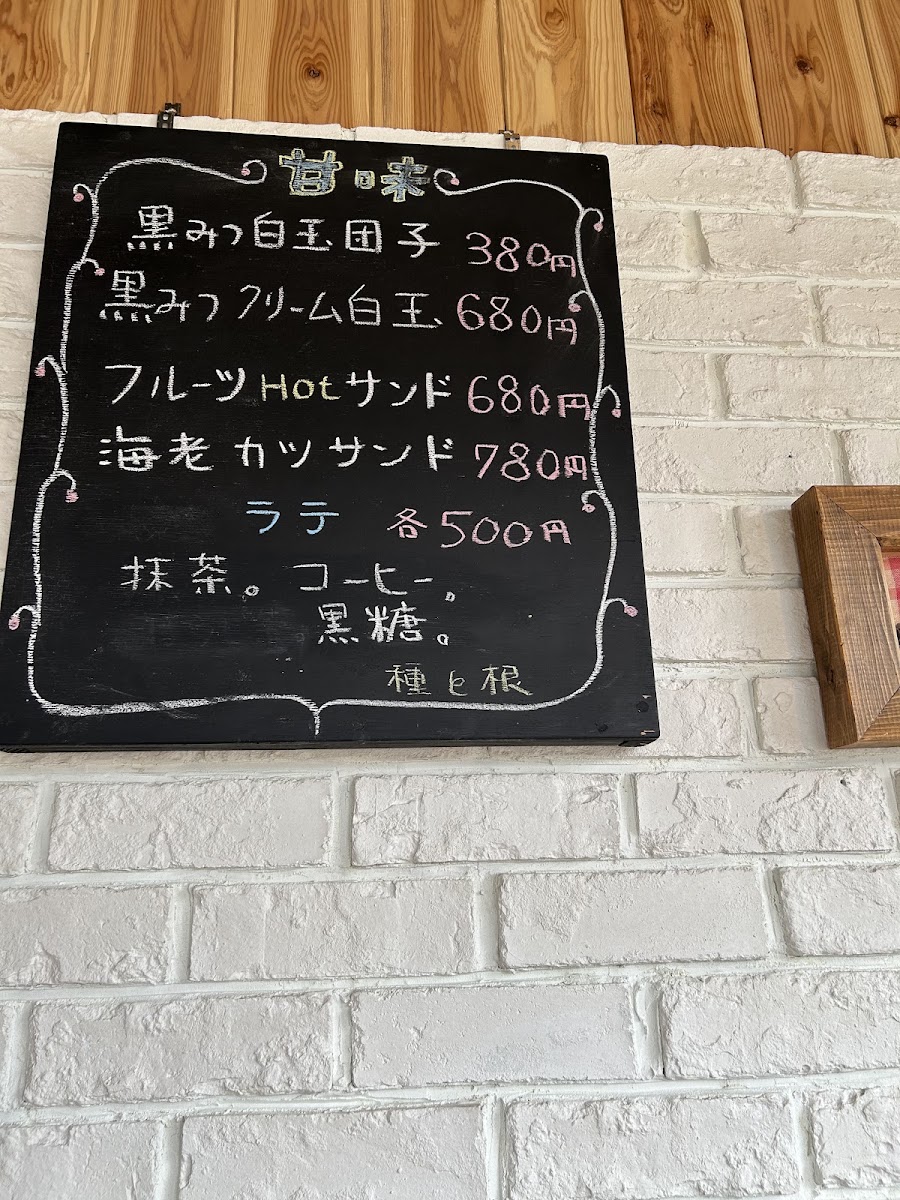 甘味
黒みつ白玉団子 380円
黒みつクリーム白玉 680円
フルーツHotサンド 680円
海老カツサンド 780円
ラテ 各500円
抹茶。コーヒー。
黒糖。
種と根